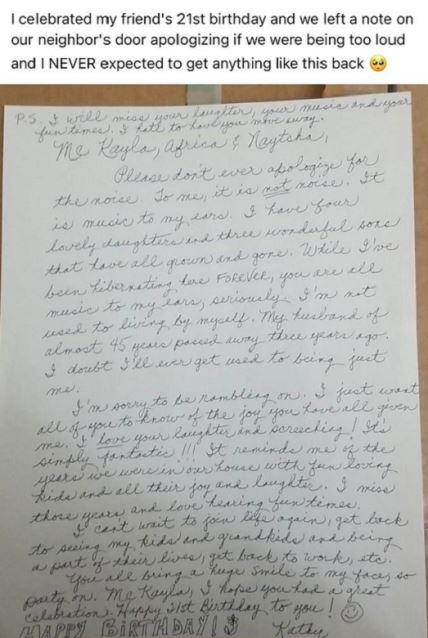 I celebrated my friend's 21st birthday and we left a note on
our neighbor's door apologizing if we were being too loud
and I NEVER expected to get anything like this back 🥹
P.S. I will miss your laughter, your music and your
fun times. I hate to have you move away.
Mc Kayla, Africa & Naytsha,
Please don't ever apologize for
the noise. To me, it is not noise. It
is music to my ears. I have four
lovely daughters and three wonderful sons
that have all grown and gone. While I've
been hibernating here FOREVER, you are all
music to my ears, seriously. I'm not
used to living by myself. My husband of
almost 45 years passed away three years ago.
I doubt I'll ever get used to being just
me.
I'm sorry to be rambling on. I just want
all of you to know of the joy you have all given
me. I love your laughter and screeching! It's
simply fantastic!!! It reminds me of the
years we were in our house with fun loving
kids and all their joy and laughter. I miss
those years and love hearing fun times.
I can't wait to join life again, get back
to seeing my kids and grandkids and being
a part of their lives, get back to work, etc.
You all bring a huge smile to my face, so
party on. Mc Kayla, I hope you had a great
celebration. Happy 21st Birthday to you! ☺
HAPPY BIRTHDAY! Kathy